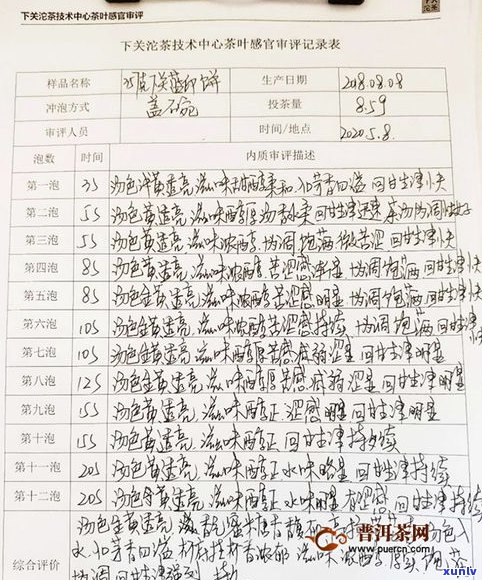 下关沱茶技术中心茶叶感官审评
下关沱茶技术中心茶叶感官审评记录表
样品名称 下关蓝印饼 生产日期 2018.08.08
冲泡方式 盖碗 投茶量 8.5g
审评人员 时间/地点 2020.5.8.
泡数 时间 内质审评描述
第一泡 3S 汤色浅黄透亮,滋味甜醇柔和,香四溢 回甘生津快
第二泡 5S 汤色黄透亮,滋味醇厚 汤香水柔 回甘生津迅速 协调性好
第三泡 5S 汤色黄透亮,滋味浓醇,协调饱满 微苦涩 回甘生津快
第四泡 8S 汤色黄透亮,滋味浓醇 苦涩感 协调饱满 回甘生津快
第五泡 8S 汤色金黄透亮,滋味浓醇 苦涩感明显 协调饱满 回甘生津快
第六泡 10S 汤色金黄透亮,滋味浓醇 苦涩感持续 协调饱满 回甘生津快
第七泡 10S 汤色金黄透亮,滋味醇厚 苦感减弱 涩显 回甘生津明显
第八泡 12S 汤色金黄透亮,滋味醇厚 苦感减弱 涩显 回甘生津明显
第九泡 15S 汤色金黄透亮,滋味醇正 涩感明显 回甘生津明显
第十泡 15S 汤色黄透亮,滋味醇正 回甘生津持续
第十一泡 20S 汤色黄透亮,滋味醇正 水味略显 回甘生津持续
第十二泡 20S 汤色金黄透亮,滋味醇正 水味明显 有涩感 回甘生津持续
综合评价 汤色金黄透亮,香气蜜糖香馥郁 汤色入
水,香四溢 香浓郁 滋味浓醇厚 饱满
协调 回甘生津强烈 持久
普洱茶网
www.puercn.com
xunlv